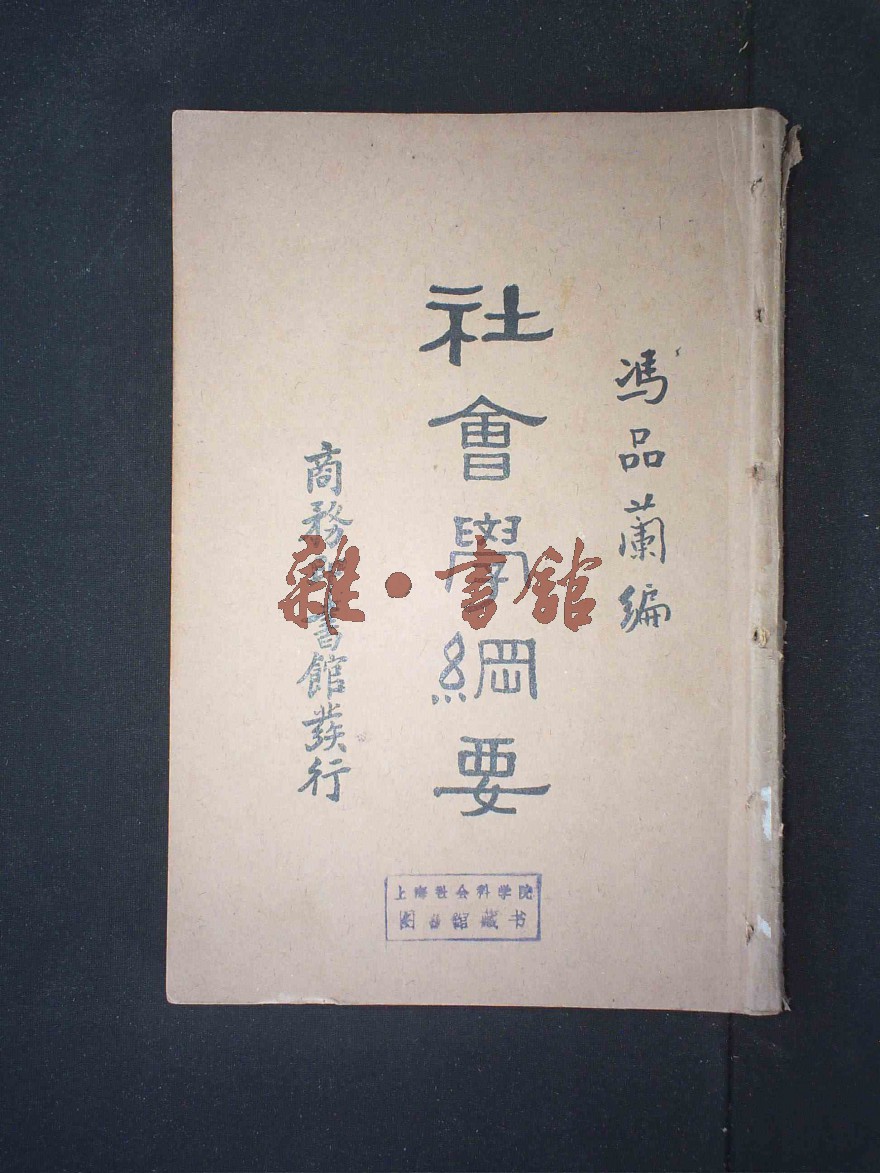 馮品蘭編
社會學綱要
商務印書館發行
雜·書館
上海社会科学院
图書館藏书